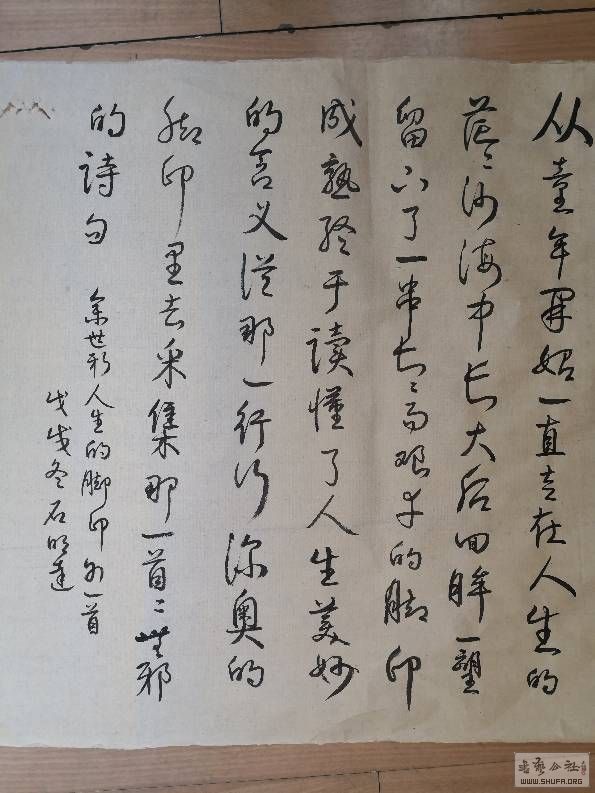 从童年開始一直走在人生的
茫々沙海中长大后回眸一望
留下了一串长々而艰辛的脚印
成熟终于讀懂了人生美妙
的含义從那一行行深奥的
脚印里去采集那一首々無邪
的詩句
余世新人生的脚印外一首
戊戌冬石明達
书艺公社
WWW.SHUFA.ORG